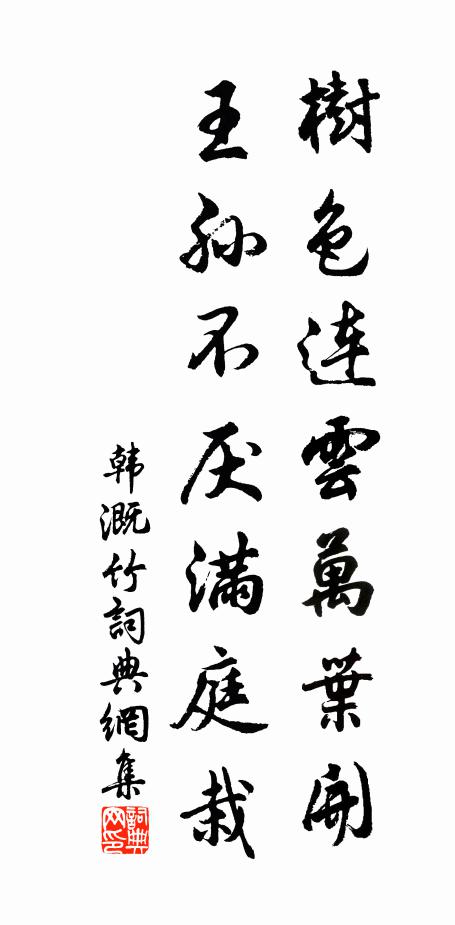 樹色連雲萬葉開
王孙不厌滿庭栽
韩溉竹詞典網集
詞典
网印